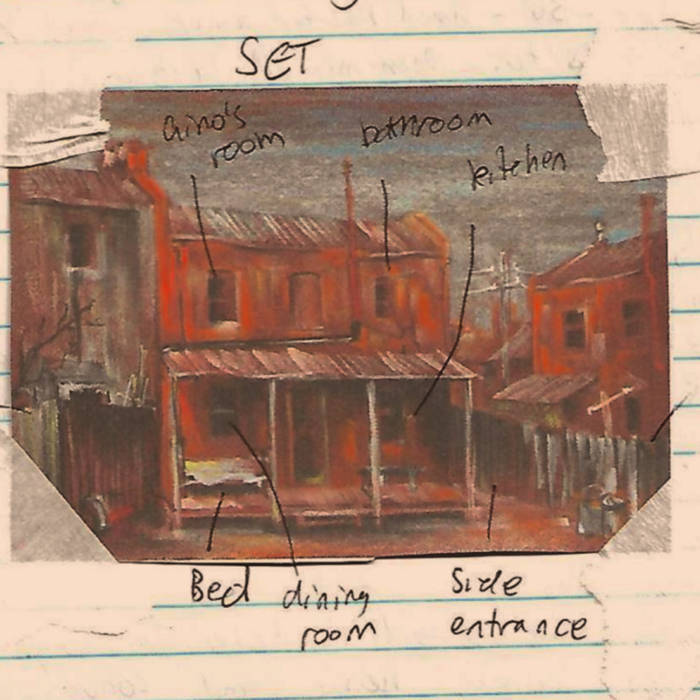 SET
Gino's
room
bathroom
kitchen
Bed
dining
room
Side
entrance